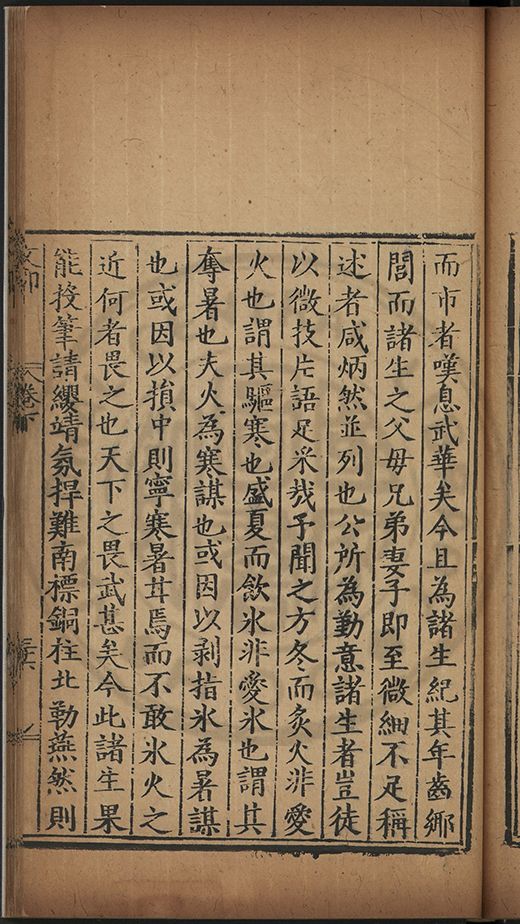 而市者嘆息武華矣今且為諸生紀其年齒鄉
閭而諸生之父母兄弟妻子即至微細不足稱
述者咸炳然並列也公所為勤意諸生者豈徒
以微技片語足采哉予聞之方冬而炙火非愛
火也謂其驅寒也盛夏而飲氷非愛氷也謂其
奪暑也夫火為寒謀也或因以剥指氷為暑謀
也或因以損中則寧寒暑茸焉而不敢氷火之
近何者畏之也天下之畏武甚矣今此諸生果
能投筆請纓靖氛捍難南標銅柱北勒燕然則
卷下